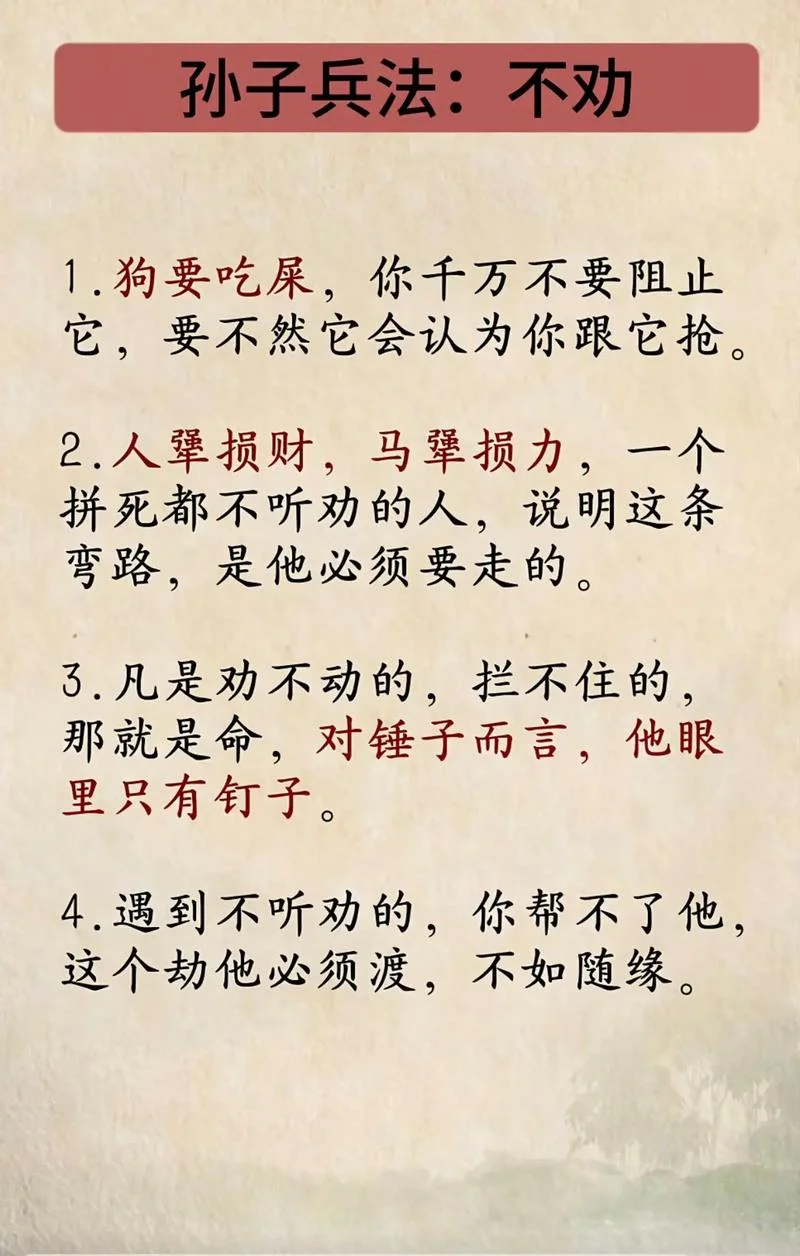 孙子兵法：不劝
1.狗要吃屎，你千万不要阻止
它，要不然它会认为你跟它抢。
2.人犟损财，马犟损力，一个
拼死都不听劝的人，说明这条
弯路，是他必须要走的。
3.凡是劝不动的，拦不住的，
那就是命，对锤子而言，他眼
里只有钉子。
4.遇到不听劝的，你帮不了他，
这个劫他必须渡，不如随缘。